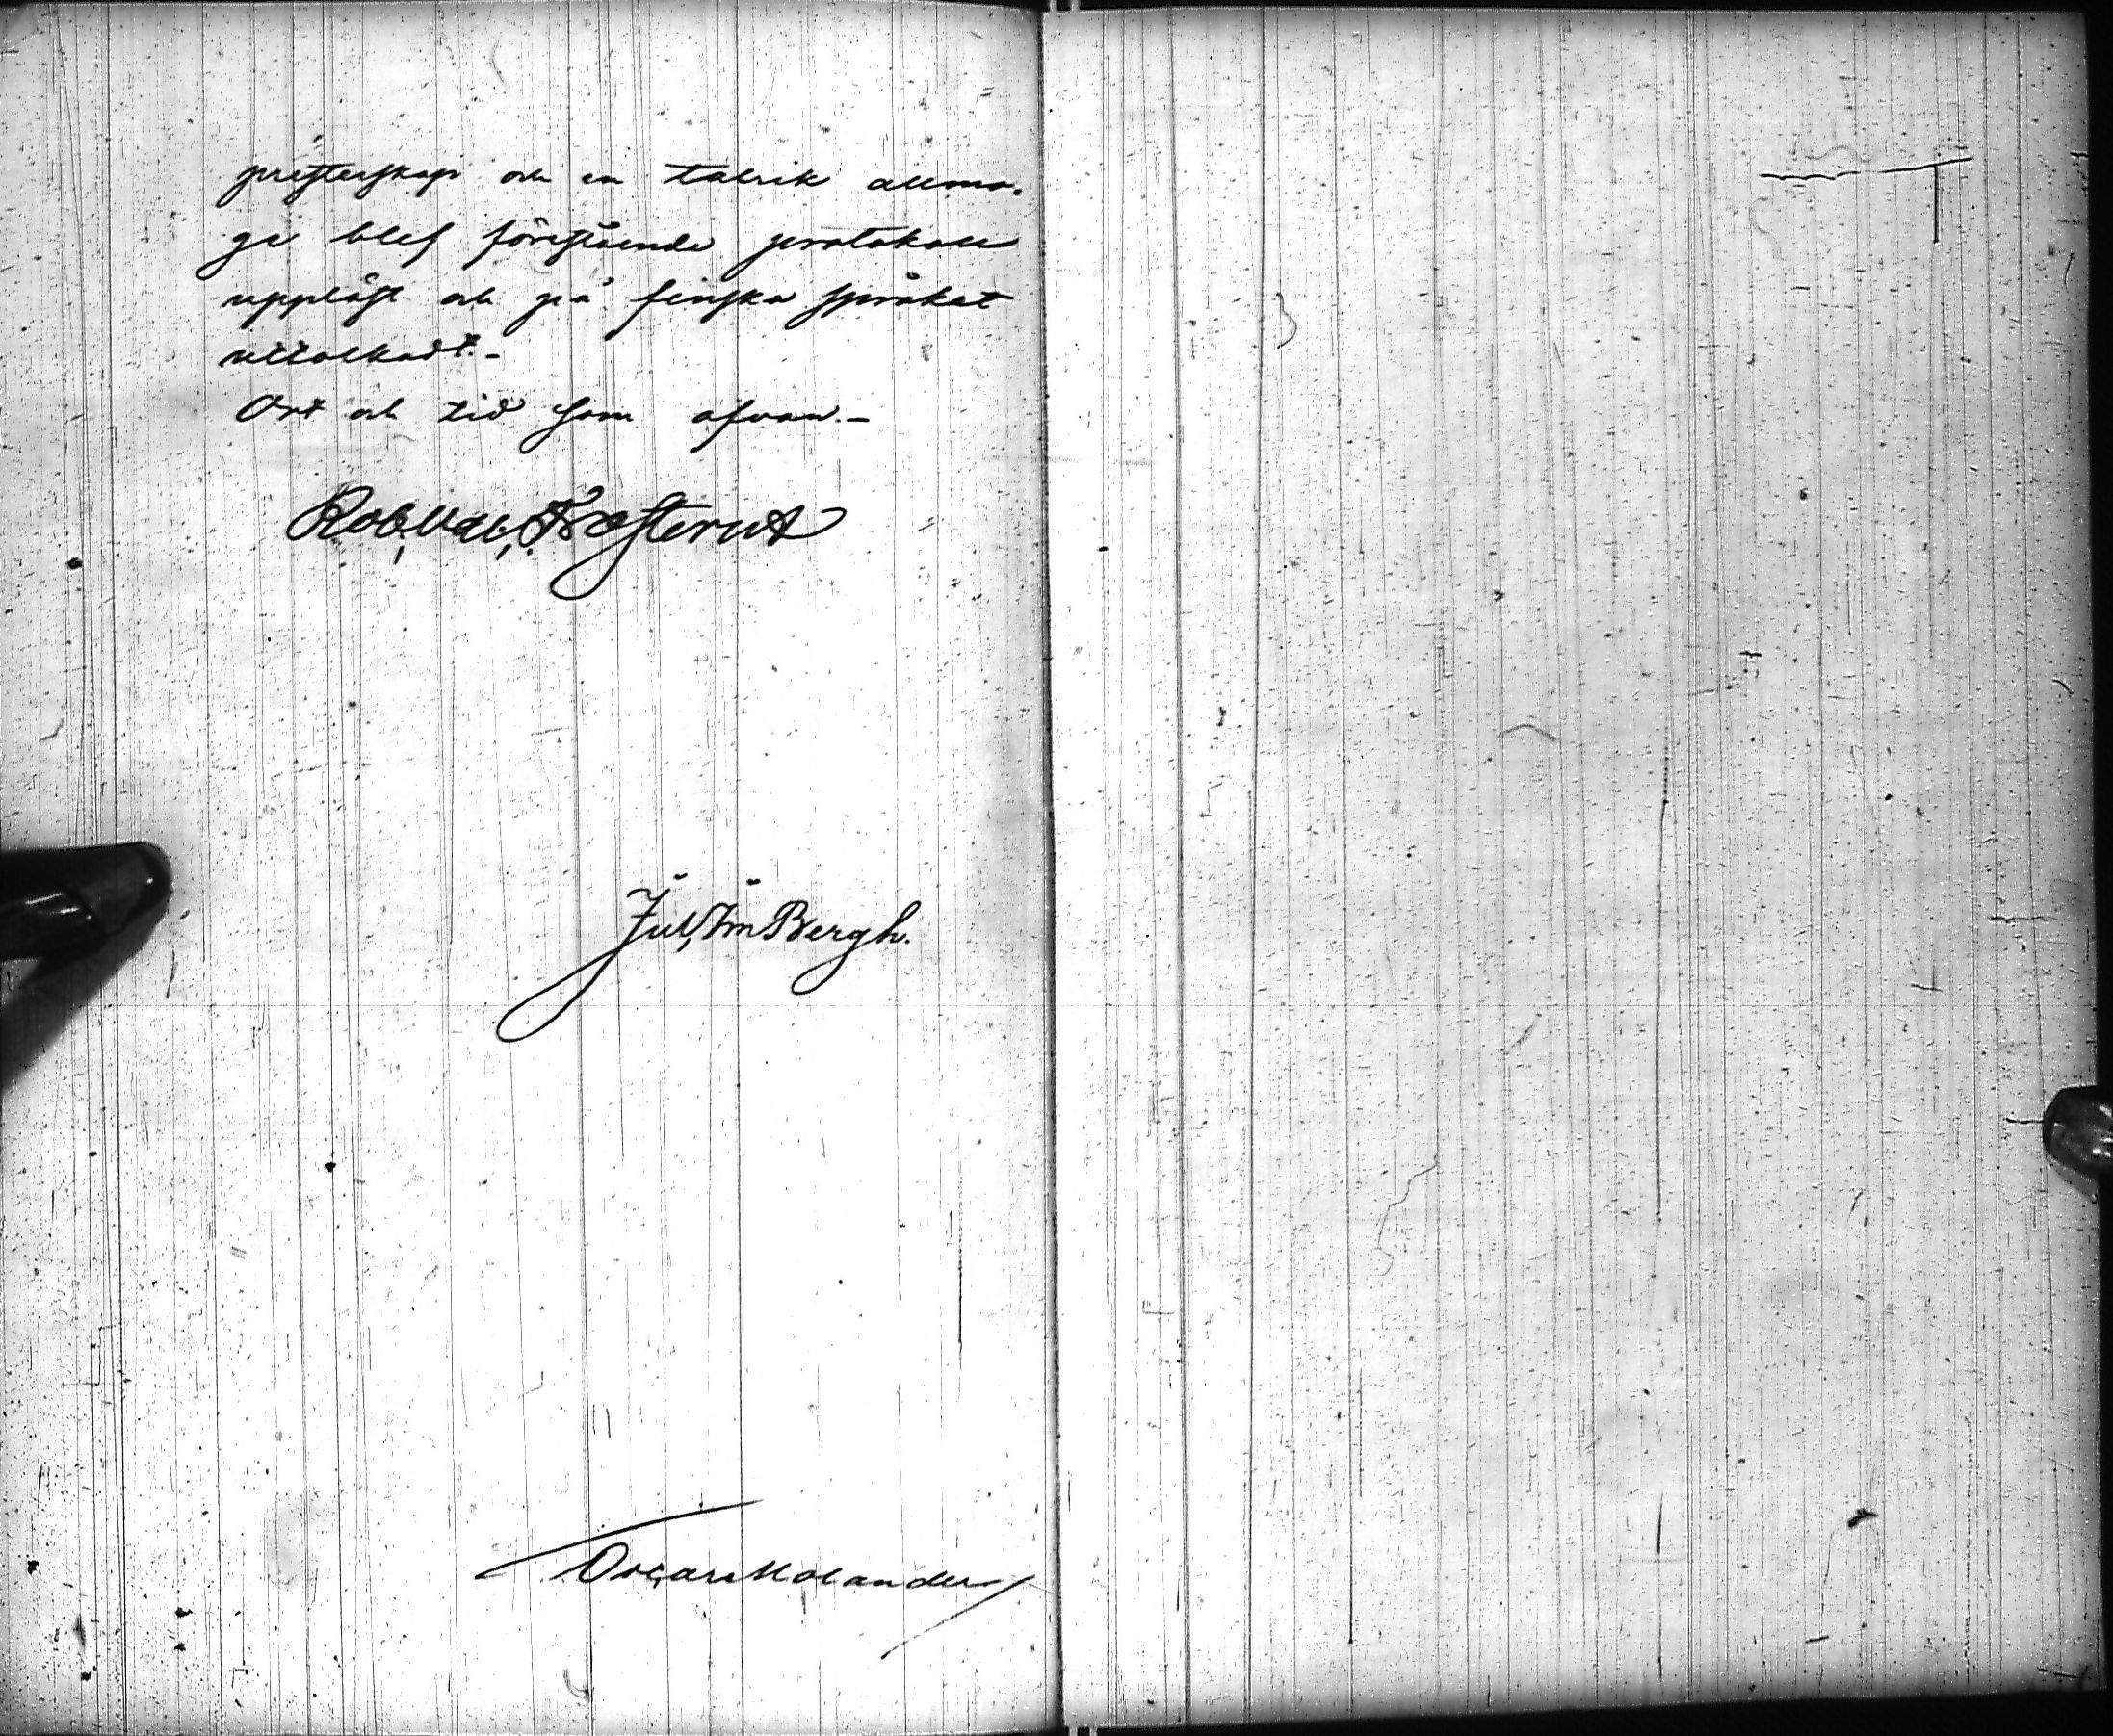 presterskap och en talrik allmo-
ge blef förestående protokoll
uppläst och på finska språket
uttolkadt.-
Ort och tid som ofvan.-
Rob. Val. Frosterus
Jul. Im. Bergh.
Oscar Molander